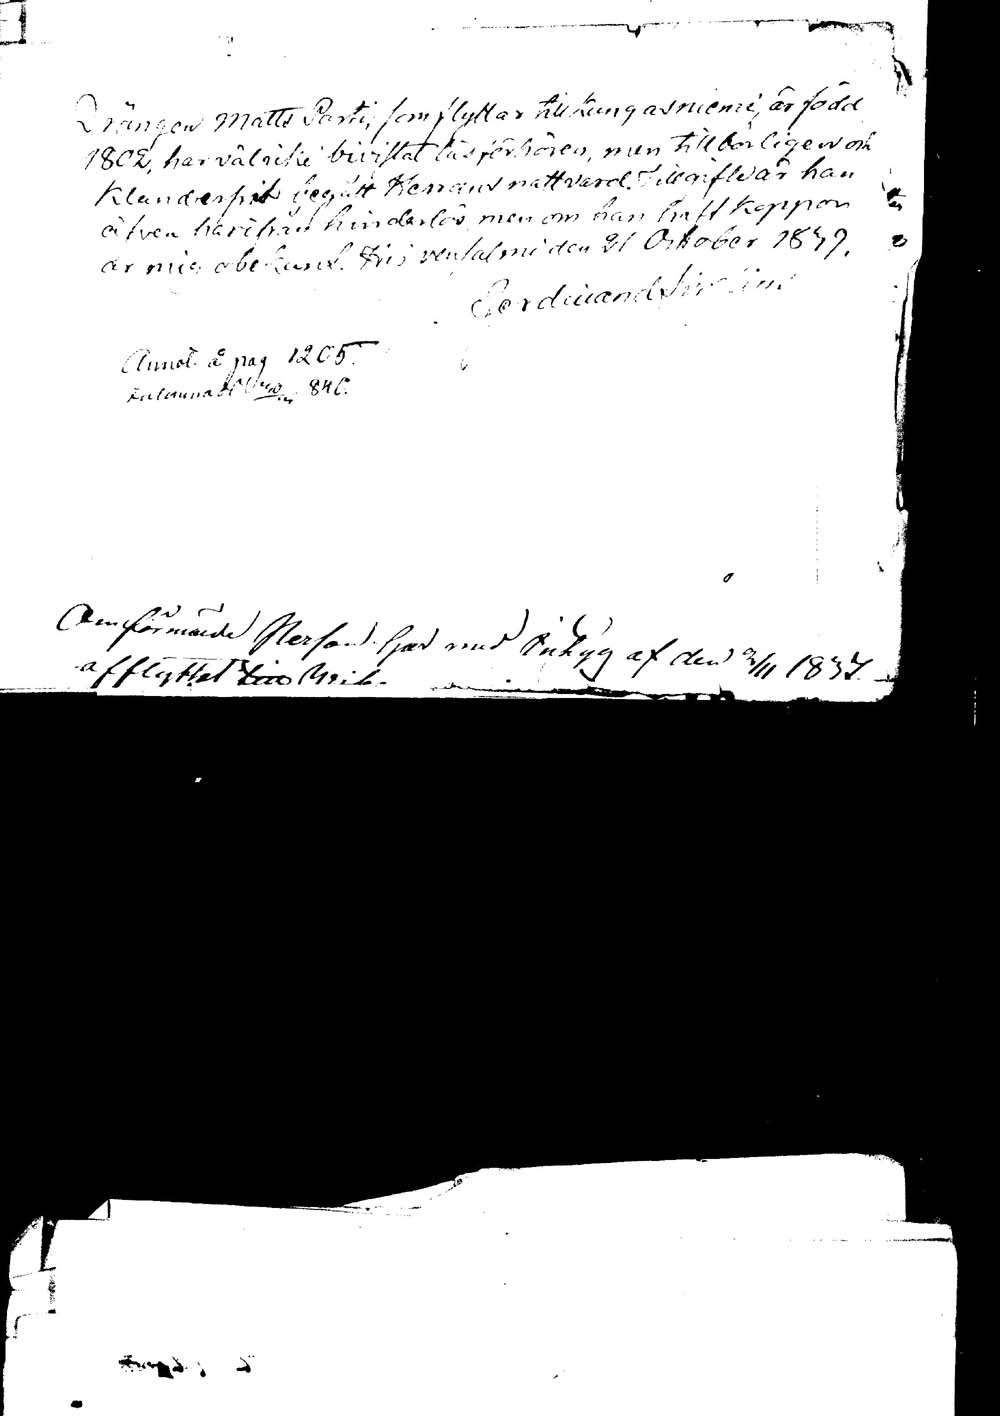 Drängen Matts Parti, som flyttar till Kungasniemi, är född
1802, har väl icke bivistat läsförhören, men tillbörligen och
klanderfritt begått Herrans nattvard. Till giftwär han
äfven härifrån hinderlös, men om han haft koppor
är mig obekant. Kri den 21 October 1839.
Ferdinand
Annot. å pag 1205.
840.
Omförmälde Person har med Intyg af den 2/11 1837
afflyttat